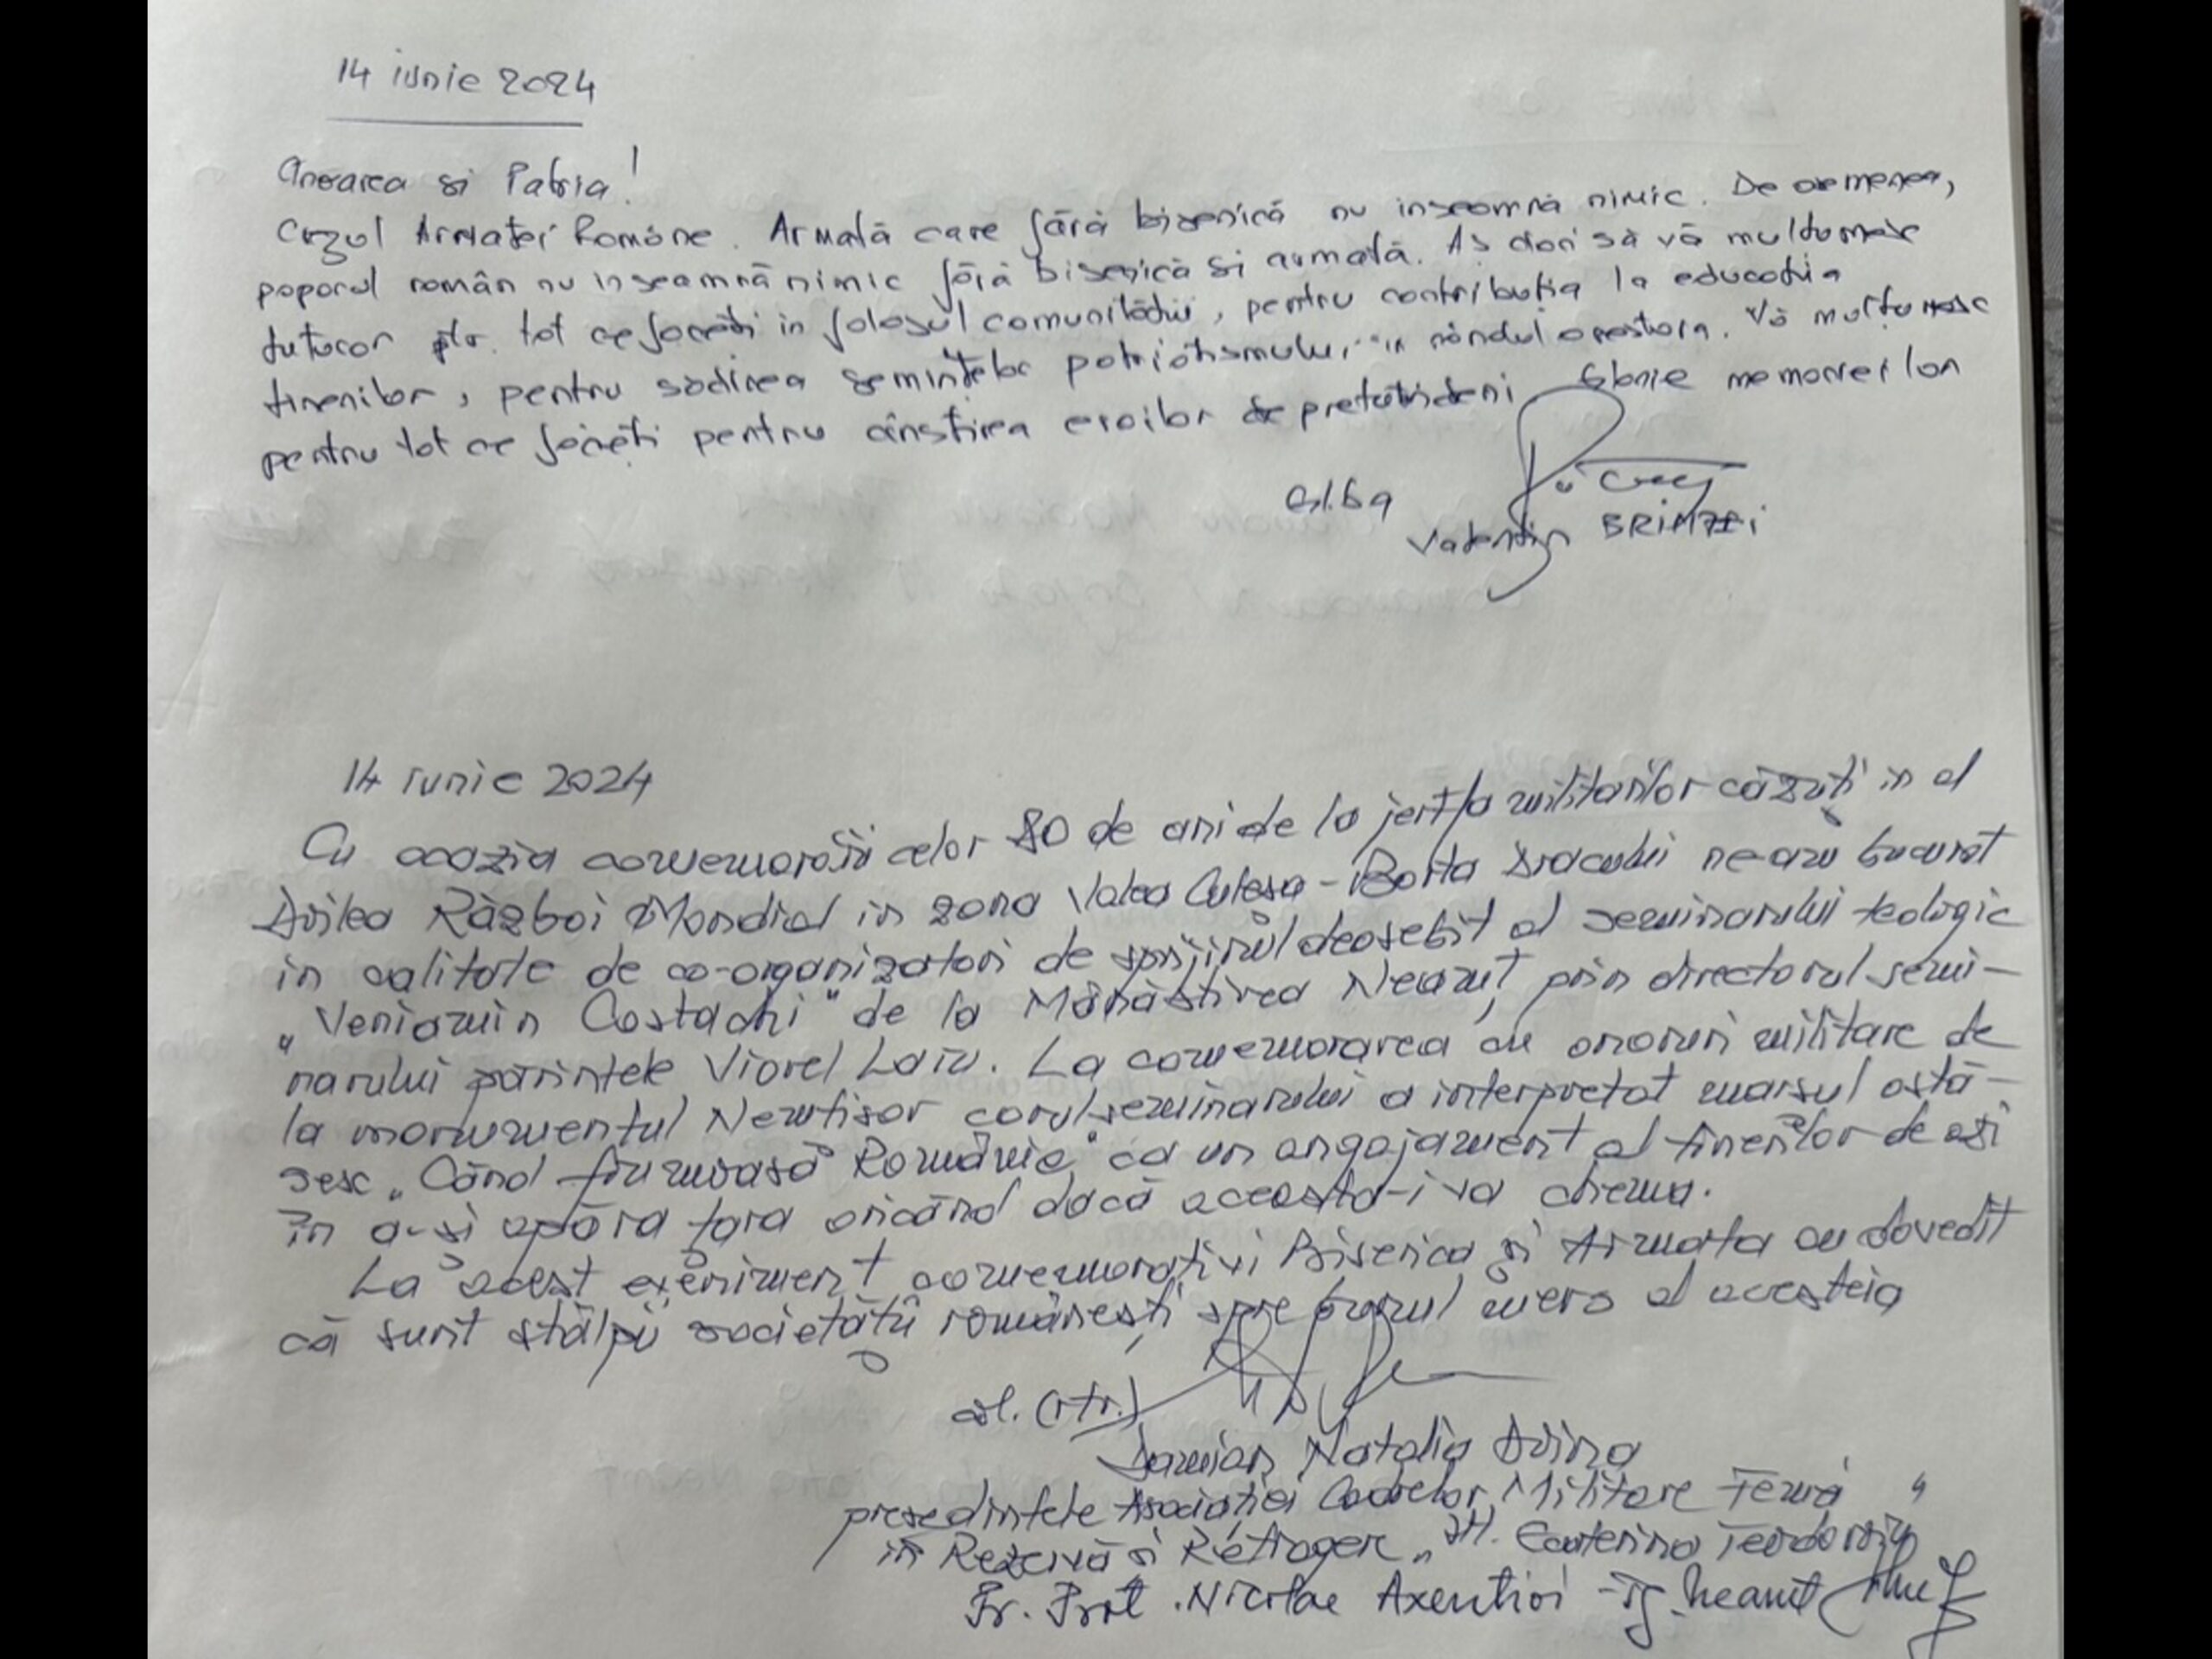 14 iunie 2024
Onoarea si Patria!
Crezul Armatei Române. Armată care fără biserică nu inseamnă nimic. De asemenea,
poporul român nu inseamnă nimic fără biserică si armată. As dori să vă multumesc
tuturor ptr. tot ce faceti in folosul comunitătii, pentru contributia la educatia
tinerilor, pentru sădirea semințelor patriotismului in rândul acestora. Vă mulțumesc
pentru tot ce faceți pentru cinstirea eroilor de pretutindeni Glorie memoriei lor
Gl.bg
Valentin BRÎNZEI
14 iunie 2024
Cu ocazia comemorării celor 80 de ani de la jertfa militarilor căzuți in al
Doilea Război Mondial in zona Valea Culeșa - Borta Dracului ne-am bucurat
in calitate de co-organizatori de sprijinul deosebit al seminarului teologic
„Veniamin Costachi" de la Mănăstirea Neamț, prin directorul semi-
narului părintele Viorel Laiu. La comemorarea cu onoruri militare de
la monumentul Nemtisor corul seminarului a interpretat marsul ostă-
sesc „Când frumoasă Românie" ca un angajament al tinerilor de azi
în a-si apăra țara oricând dacă aceasta-i va chema.
La acest eveniment comemorativ Biserica și Armata au dovedit
că sunt stâlpii societății românești spre bunul mers al acesteia
col. (rtr.)
Damian Natalia Doina
presedintele Asociației Cadrelor Militare Femă
în Rezervă și Retragere „Slt. Ecaterina Teodoroiu"
Pr. Prot. Nicolae Axentioi - Tg. Neamt